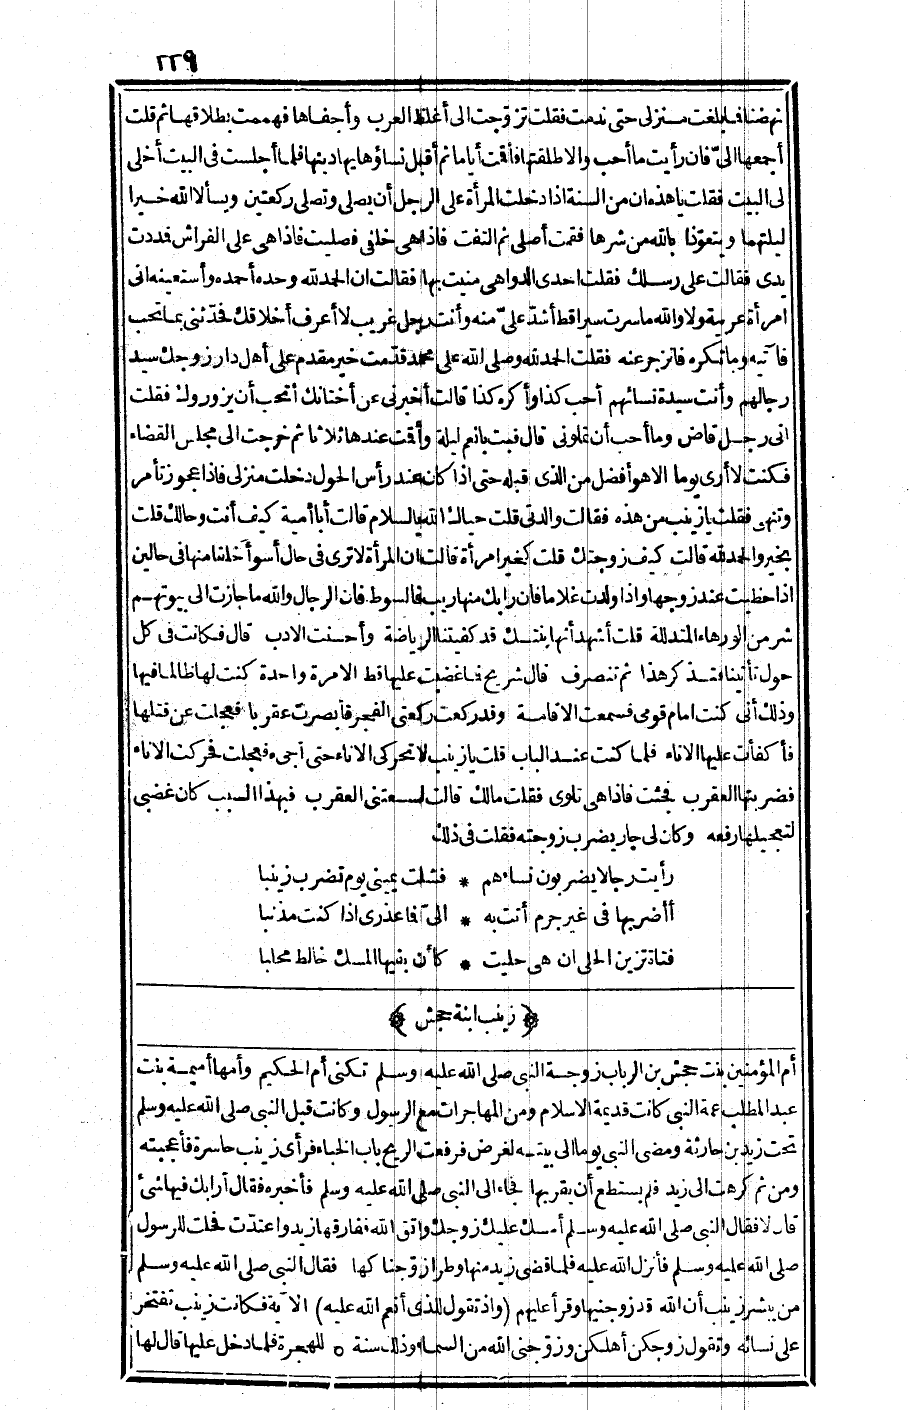 ٢٢٩
نهضنا فما بلغت منزلى حتى ندمت فقلت تزوّجت الى أغلظ العرب وأجفاها فهممت بطلاقها ثم قلت
أجمعها الىّ فان رأيت ما أحب والا طلقتها فأقت أياما ثم أقبل نساؤها يهادينها فلما أجلست فى البيت أخلى
لى البيت فقلت ياهذه ان من السنة اذا دخلت المرأة على الرجل أن يصلى وتصلى ركعتين ويسألا الله خيرا
ليلتهما ويتعوّذا بالله من شرها فقمت أصلى ثم التفت فاذا هى خلفى فصليت فاذا هى على الفراش فددت
يدى فقالت على رسلك فقلت احدى الدواهى منيت بها فقالت ان الحمد لله وحده أحمده وأستعينه انى
امرأة عربية ولا والله ما سرت سيرا قط أشدّ علىّ منه وأنت رجل غريب لا أعرف أخلاقك فحدّثنى بما تحب
فآتيه وما تكره فانزجر عنه فقلت الحمد لله وصلى الله على محمد قدّمت خير مقدم على أهل دار زوجك سيد
رجالهم وأنت سيدة نسائهم أحب كذا وأكره كذا قالت أخبرنى عن أختانك أتحب أن يزوروك فقلت
انى رجل قاض وما أحب أن تملونى قال فبت بانعم ليلة وأقت عندها ثلاثا ثم خرجت الى مجلس القضاء
فكنت لا أرى يوما الا هو أفضل من الذى قبله حتى اذا كان عند رأس الحول دخلت منزلى فاذا عجوز تأمر
وتنهى فقلت يازينب من هذه فقالت والدتى قلت حياك الله بالسلام قالت أبا أمية كيف أنت وحالك قلت
بخير والحمد لله قالت كيف زوجتك قلت كخير امرأة قالت ان المرأة لا ترى فى حال أسوأ خلقا منها فى حالين
اذا حظيت عند زوجها واذا ولدت غلاما فان رابك منها ريب فالسوط فان الرجال والله ما حازت الى بيوتهم
شر من الورهاء المتدللة قلت أشهد أنها ابنتك قد كفيتنا الرياضة وأحسنت الادب قال فكانت فى كل
حول تأتينا فتذكر هذا ثم تنصرف قال شريح فما غضبت عليها قط الا مرة واحدة كنت لها ظالما فيها
وذلك أنى كنت امام قومى فسمعت الاقامة وقد ركعت ركعتى الفجر فأبصرت عقربا فعجلت عن قتلها
فأكفأت عليها الاناء فلما كنت عند الباب قلت يازينب لا تحركى الاناء حتى أجىء فعجلت فحركت الاناء
فضربتها العقرب فجئت فاذا هى تلوى فقلت مالك قالت لسعتنى العقرب فبهذا السبب كان غضبى
لتعجيلها رفعه وكان لى جار يضرب زوجته فقلت فى ذلك
رأيت رجالا يضربون نساءهم * فشلت يمينى يوم تضرب زينبا
أأضربها فى غير جرم أتت به * الىّ فما عذرى اذا كنت مذنبا
فتاة تزين الحلى ان هى حليت * كأن بفيها المسك خالط محلبا
﴿ زينب ابنة جحش ﴾
أم المؤمنين بنت جحش بن الرباب زوجة النبى صلى الله عليه وسلم تكنى أم الحكيم وأمها أميمة بنت
عبد المطلب عمة النبى كانت قديمة الاسلام ومن المهاجرات مع الرسول وكانت قبل النبى صلى الله عليه وسلم
تحت زيد بن حارثة ومضى النبى يوما الى بيته لغرض فرفعت الريح باب الخباء فرأى زينب حاسرة فأعجبته
ومن ثم كرهت الى زيد فلم يستطع أن يقربها فجاء الى النبى صلى الله عليه وسلم فأخبره فقال أرابك فيها شئ
قال لا فقال النبى صلى الله عليه وسلم أمسك عليك زوجك واتق الله ففارقها زيد واعتدّت فحلت للرسول
صلى الله عليه وسلم فأنزل الله عليه فلما قضى زيد منها وطرا زوّجناكها فقال النبى صلى الله عليه وسلم
من يبشر زينب أن الله قد زوجنيها وقرأ عليهم (واذ تقول للذى أنعم الله عليه) الآية فكانت زينب تفتخر
على نسائه وتقول زوجكن أهلكن وزوّجنى الله من السماء وذلك سنة ٥ للهجرة فلما دخل عليها قال لها